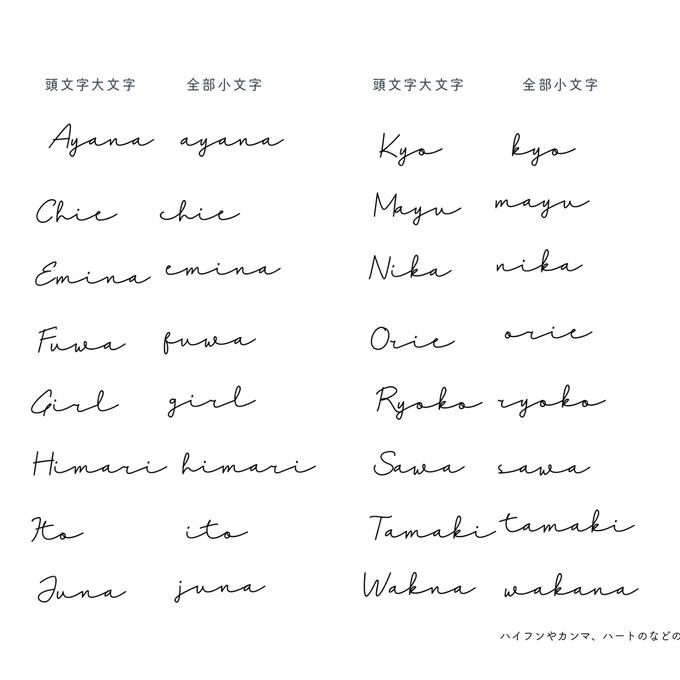 頭文字大文字 全部小文字
Ayana ayana
Chie chie
Emina emina
Fuwa fuwa
Girl girl
Himari himari
Ito ito
Juna juna
頭文字大文字 全部小文字
Kyo kyo
Mayu mayu
Nika nika
Orie orie
Ryoko ryoko
Sawa sawa
Tamaki tamaki
Wakna wakana
ハイフンやカンマ、ハートのなどの